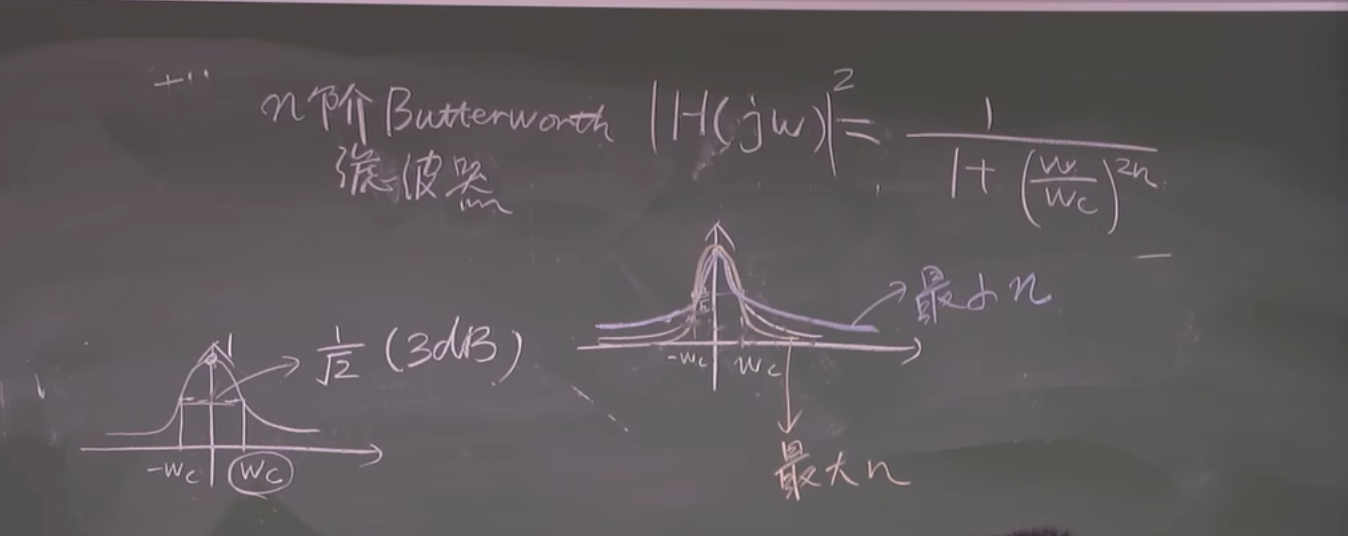 n阶Butterworth |H(jw)|² = 1 / (1 + (w/wc)^2n)
滤波器
1
1/√2 (3dB)
-wc wc
最小n
1/√2
-wc wc
最大n